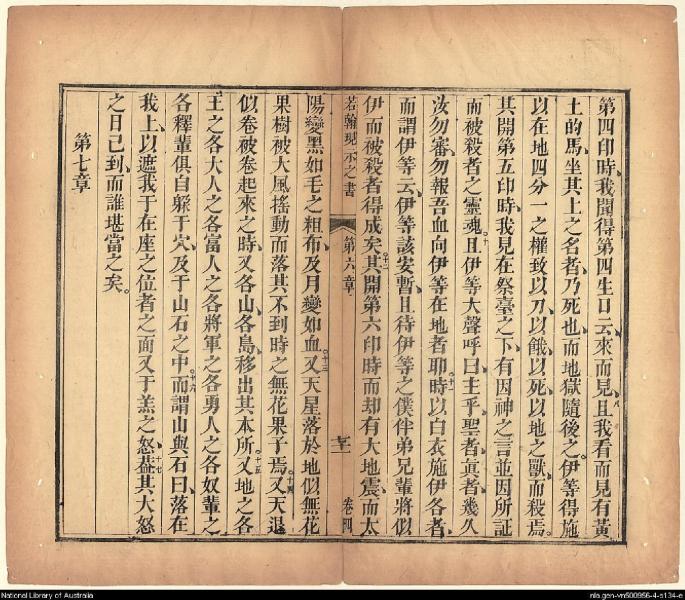 第四印時、我聞得第四生口云、來而見、八且我看而見有黃
土的馬、坐其上之名者、乃死也、而地獄隨後之。伊等得施
以在地四分一之權、致以刀、以餓、以死、以地之獸、而殺焉。
其開第五印時、我見在祭臺之下、有因神之言並因所証
而被殺者之靈魂。十且伊等大聲呼曰、主乎、聖者、眞者、幾久
汝勿審、勿報吾血向伊等在地者耶。十一時以白衣施伊各者、
而謂伊等云、伊等該安暫、且待伊等之僕伴弟兄輩將似
伊而被殺者得成矣。十二其開第六印時而却有大地震、而太
若翰現示之書 第六章 卷四
陽變黑如毛之粗布、及月變如血。十三又天星落於地、似無花
果樹被大風搖動而落其不到時之無花果子焉。十四又天退
似卷被卷起來之時、又各山、各島、移出其本所。十五又地之各
王之各大人之各富人之各將軍之各勇人之各奴輩之
各釋輩俱自躲于穴、及于山石之中。十六而謂山與石曰、落在
我上、以遮我于在座之位者之面又于羔之怒。十七葢其大怒
之日已到、而誰堪當之矣。
第七章
National Library of Australia
nla.gen-vn500956-4-s134-e